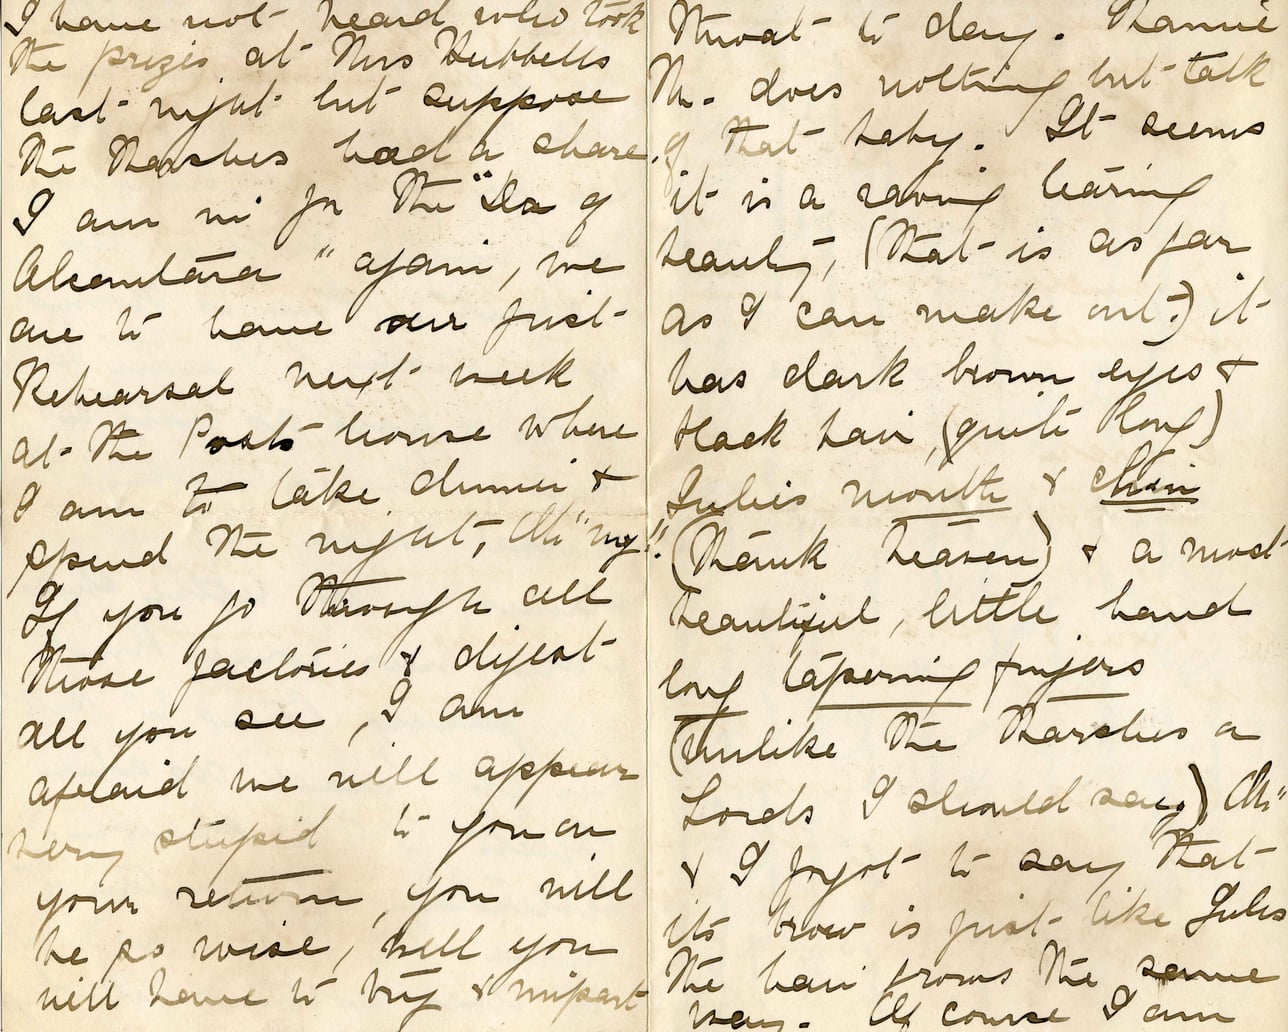 I have not heard who took
the prizes at Mrs Hubbells
last night but suppose
the Marshes had a share.
I am in for the "Dr of
Alcantara" again, we
are to have our first
Rehearsal next week
at the Posts house where
I am to take dinner &
spend the night, Oh "my"!
If you go through all
those factories & digest
all you see, I am
afraid we will appear
very stupid to you on
your return, you will
be so wise, well you
will have to try & impart
throat to day. Mamie
M. does nothing but talk
of that baby. It seems
it is a raving tearing
beauty, (that is as far
as I can make out.) it
has dark brown eyes &
black hair, (quite long)
Jules mouth & chin
(thank heaven) & a most
beautiful, little hand
long tapering fingers
(unlike the Marshes or
Lords I should say,) Oh"
& I forgot to say that
its brow is just like Jules
the hair grows the same
way. Of course I am